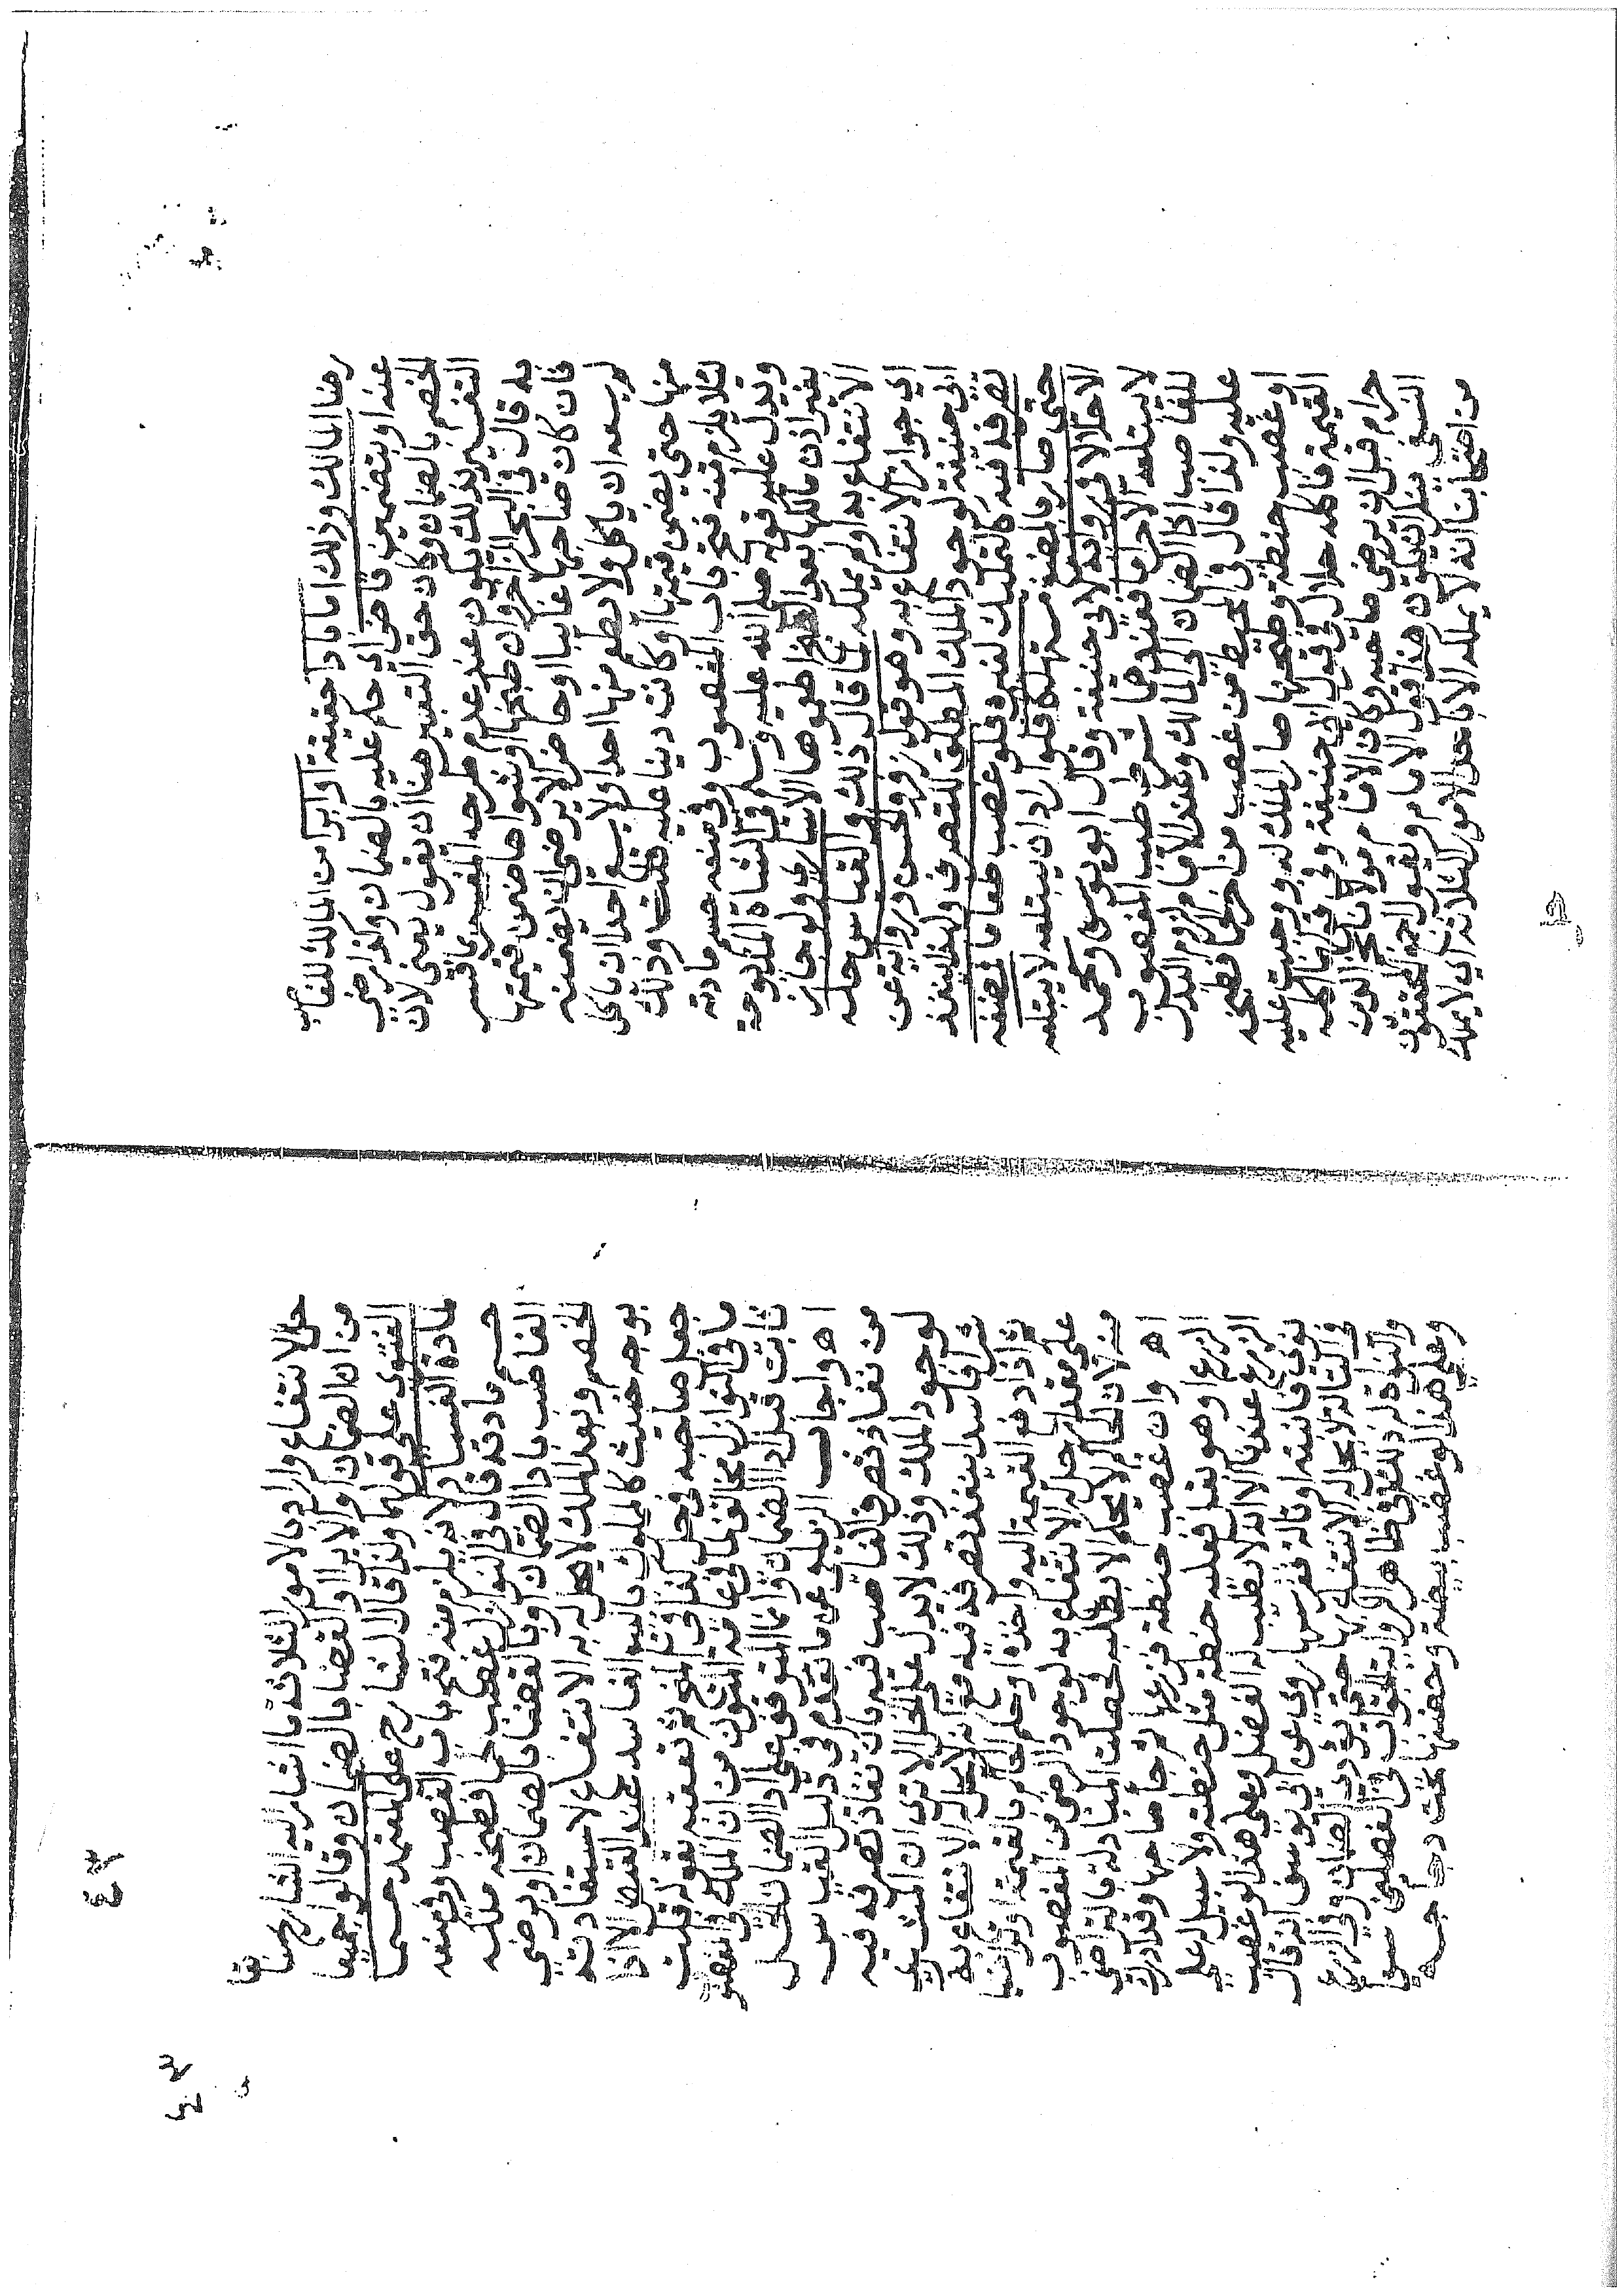 رضا المالك وذلك اما باداحقيقة او ابرا من المالك للغاصب
عنه او بتضمين قاضي اي حكم عليه بالضمان وكذا رضي
الخصم بالضمان وكان حق التعبير هنا ان يقول يعني لان
التفسير بذلك يكون عند علم طرحه المفسر بما فسر
به قال في البحر الزاخر وان طبخها او شواها ضمن قيمتها
فان كان صاحبها غايبا او حاضرا لا يرضى ان يضمنه
لم يسعه ان ياكل ولا يطعم منها احدا ولا يسع احدا ان ياكل
منها حتى يضمن قيمتها او كانت دينا عليه قلت وذلك
لئلا يلزم منه فتح باب الغصوب وفي منعه حسم مادته
ويدل عليه قوله صلى الله عليه وسلم في الشاة المذبوحة
بغير اذن مالكها بعد الطبخ اطعموها الاسارى ولو جاز
الانتفاع به او لم يملكه لما قال ذلك والقياس حله
اي جواز الانتفاع به وهو قول زفر والحسن ورواية عن
ابي حنيفة لوجود الملك المطلق للتصرف ولهذا ينفذ
تصرفه فيه كالتمليك لغيره فلو غصب طعاما فمضغه
حتى صار بالمضغ مستهلكا فلو اراد ان يبتلعه لا يبتلعه
الا حلالا في رواية لابي حنيفة وقال ابو يوسف ومحمد
لا يبتلعه الا حراما فعندهما شرط طيب المغصوب
للغاصب اذا الضمان الى المالك وعند الامام لزوم البدل
عليه ولذا قال في المحيط من غصب من اخر لحما فطبخه
او غصب حنطة وطحنها صار الملك له ووجبت عليه
القيمة فاكله حلال في قول ابي حنيفة وفي قولهما اكله
حرام قبل ان يرضى صاحبه وكان الامام مولانا نجم الدين
النسفي ينكر ان يكون هذا قول الامام ويقول اجمع المحققون
من اصحابنا انه لا يملكه الا باحدى الامور الثلاثة اي لا يملك
حل الانتفاع واراد بالامور الثلاثة ما اشار اليه الشارح هنا
من ان الضمان والابرا والقضا بالضمان وقالوا جميعا
الفتوى على قولهما ولذا قال الشارح على المعتمد حسما
لمادة الفساد لانه يلزم منه فتح باب الغصب وفي منعه
حسم مادته قال في النوازل غصب لحما فطبخه ملكه
الغاصب بادا الضمان او بالقضا بالضمان او برضي
الخصم وبعد الملك لا يحل له به الانتفاع لاستفادته
بوجه خبيث كالمملوك بالبيع الفاسد عند القبض الا اذا
جعل صاحبه في حل كذا في المنح ثم تعقبه بقوله قلت
ما في النوازل مخالف لما في عامة المتون من ان الملك في المغصوب
ثابت قبل ادا الضمان وانما المتوقف على ادا الضمان الحل
اهـ واجاب الزيلعي عما تقدم في دليل القياس
من نفاذ تصرف الغاصب فيه بان نفاذ تصرفه فيه
لوجود الملك وذلك لا يدل على الحل الا ترى ان المشتري
شرا فاسدا ينفذ تصرفه فيه مع انه لا يحل له الانتفاع به
ثم اذا دفع القيمة اليه واخذه او حكم الحاكم بالقيمة او تراضيا
على مقدار حل له الانتفاع به لوجود الرضى من المغصوب
منه لان الحاكم لا يحكم الا بطلبه فحصلت المبادلة بالتراضي
اهـ وان غصب حنطة فزرعها ثم جا صاحبها وقد ادرك
الزرع او هو بقل فعليه حنطة مثل حنطته ولا سبيل له على
الزرع عندنا الا انه لا يطيب له الفضل وعلى هذا لو غصب
نوى فانبته او تالة فغرسها روي عن ابي يوسف انه قال
في التالة لا يحل له الانتفاع بها حتى يؤدي الضمان وفي الزرع
والنواة له ذلك وفي ظاهر الرواية الجواب في الفصلين سوا
وعلى هذا لو غصب بيضة وحضنها تحت دجاجة